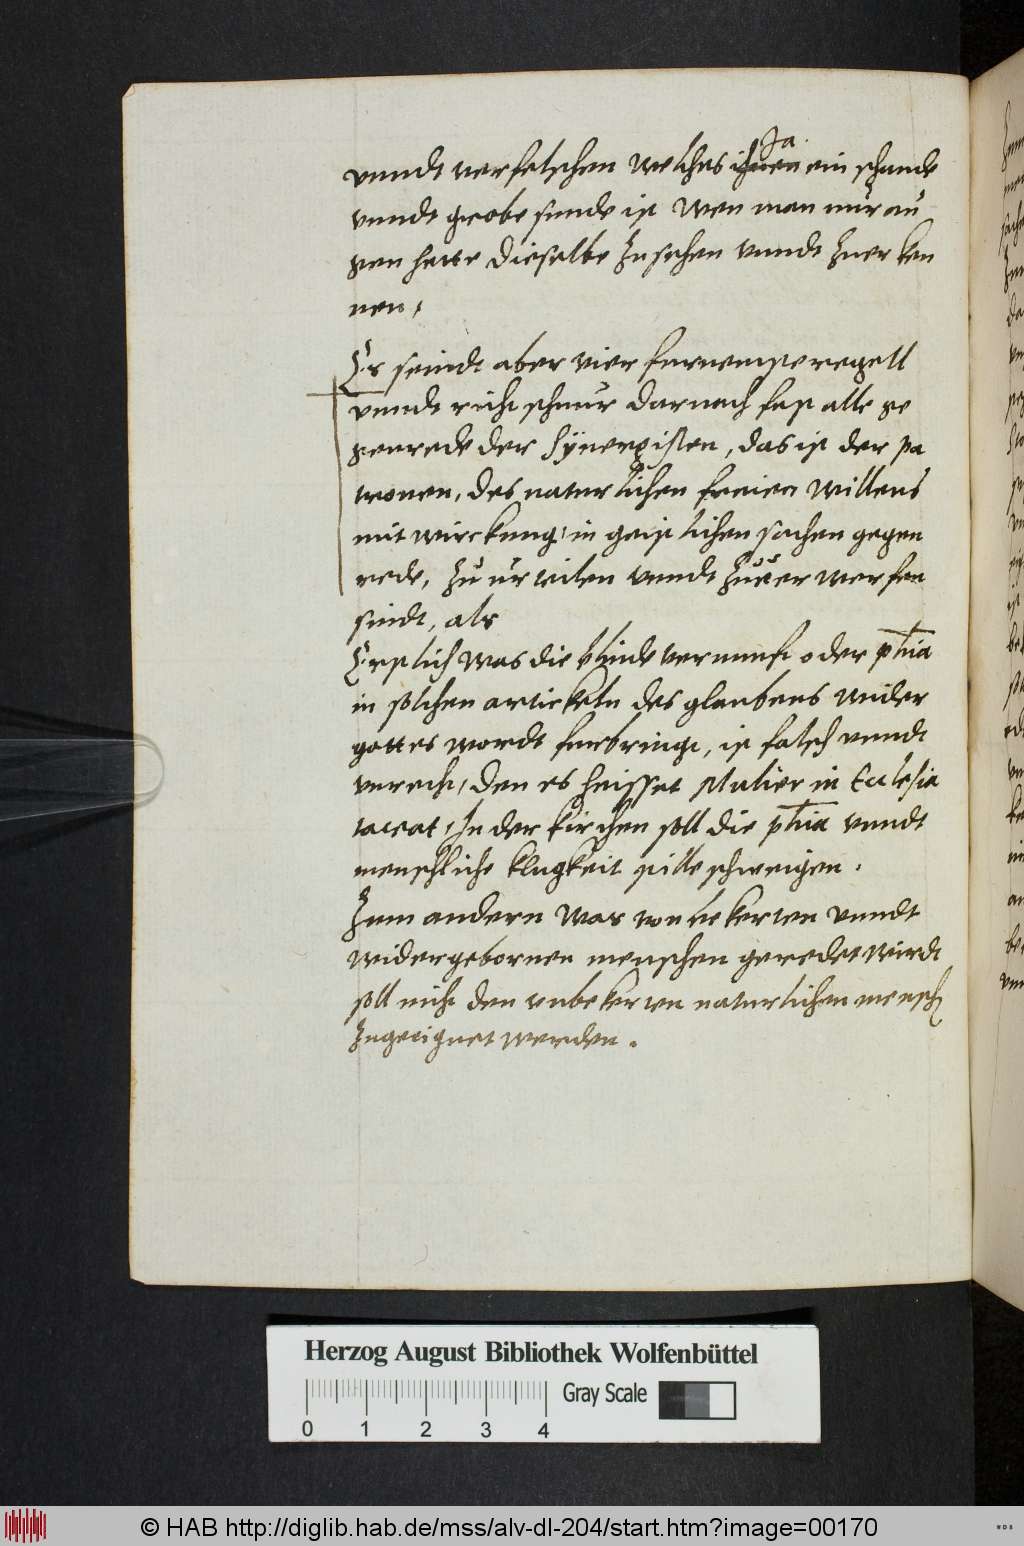 Ja
vnndt verfelschen welches ihnen ein schande
vnndt grobe sunde ist Wen man nur au
gen hette dieselbe zusehen vnndt zuerken
nen,
Es seindt aber vier furnemste regell
vnndt richtschnur darnach fast alle ge
genrede der Synergisten, das ist der pa
tronen, des naturlichen freien Willens
mit wirckung, in geistlichen sachen gegen
rede, zu urteilen vnndt zuuerwerfen
sindt, als
Erstlich was die blinde vernunft oder phia
in solchen artickeln des glaubens wider
gottes wordt furbringt, ist falsch vnndt
vnrecht, den es heisset Mulier in Ecclesia
taceat, In der kirchen soll die phia vnndt
menschliche klugkeit stille schweigen.
Zum andern was von bekerten vnndt
widergebornen menschen geredet wirdt
soll nicht den vnbekerten naturlichen mensch
zugeeignet werden.
Herzog August Bibliothek Wolfenbüttel
Gray Scale
0 1 2 3 4
© HAB http://diglib.hab.de/mss/alv-dl-204/start.htm?image=00170